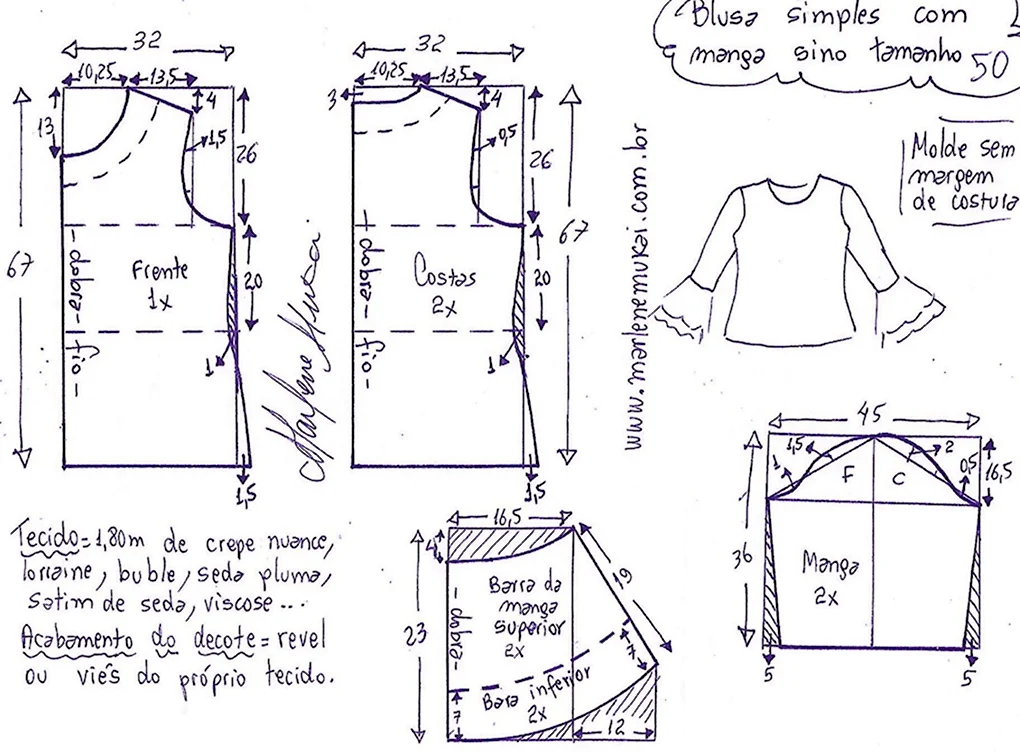 Blusa simples com
manga sino tamanho 50
Molde sem
margem
de costura
www.marlenemukai.com.br
32
10,25
13,5
4
13
1,5
26
67
Frente
1x
20
dobra
fio
1
1,5
32
10,25
13,5
3
4
0,5
26
67
Costas
2x
20
dobra
fio
1
1,5
45
1
1,5
F
C
2
0,5
16,5
36
Manga
2x
5
5
Tecido=1,80m de crepe nuance,
lorraine, buble, seda pluma,
satim de seda, viscose...
Acabamento do decote=revel
ou viés do próprio tecido.
16,5
4
19
23
dobra
Barra da
manga
superior
2x
7
7
Bara inferior
2x
12